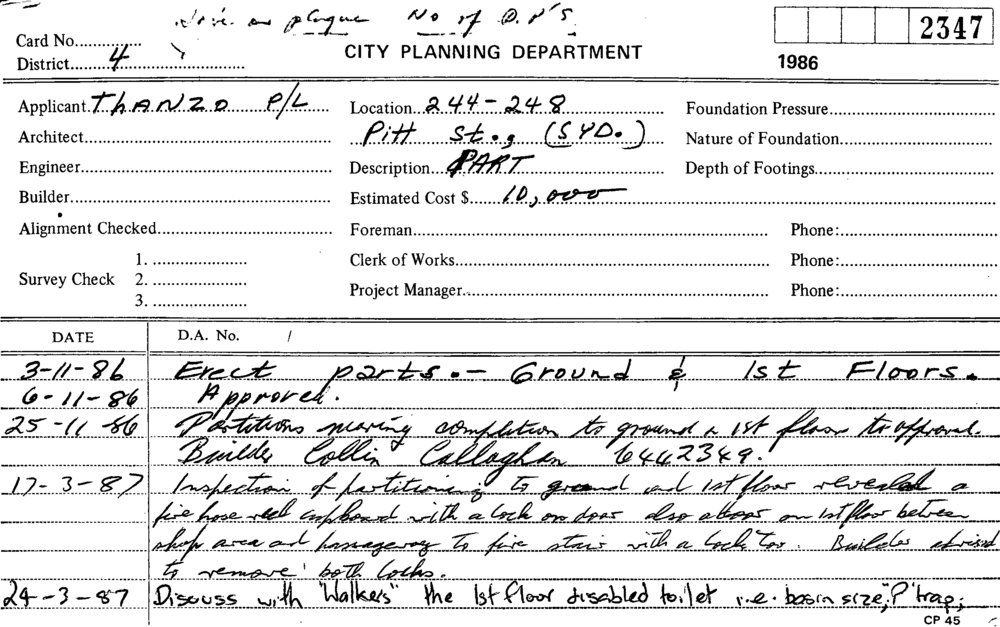 plaque No of D.A's
2347
Card No..............
District.......4..................
CITY PLANNING DEPARTMENT
1986
Applicant.THANZO P/L
Location...244-248
Foundation Pressure
Architect
Pitt St., (SYD.)
Nature of Foundation
Engineer
Description...PART
Depth of Footings
Builder
Estimated Cost $......10,000
Alignment Checked
Foreman
Phone:
Survey Check
1.
2.
3.
Clerk of Works
Phone:
Project Manager
Phone:
DATE D.A. No. /
3-11-86 Erect parts. - Ground & 1st Floors.
6-11-86 Approved.
25-11-86 Partitions nearing completion to ground & 1st floor to approval.
Builder Collin Callaghan 6442349.
17-3-87 Inspection of partitioning to ground and 1st floor revealed a
fire hose reel cupboard with a lock on door also a door on 1st floor between
shop area and passageway to fire stair with a lock too. Builder advised
to remove both locks.
24-3-87 Discuss with "Walkers" the 1st floor disabled toilet i.e. basin size, "P" trap;
CP 45